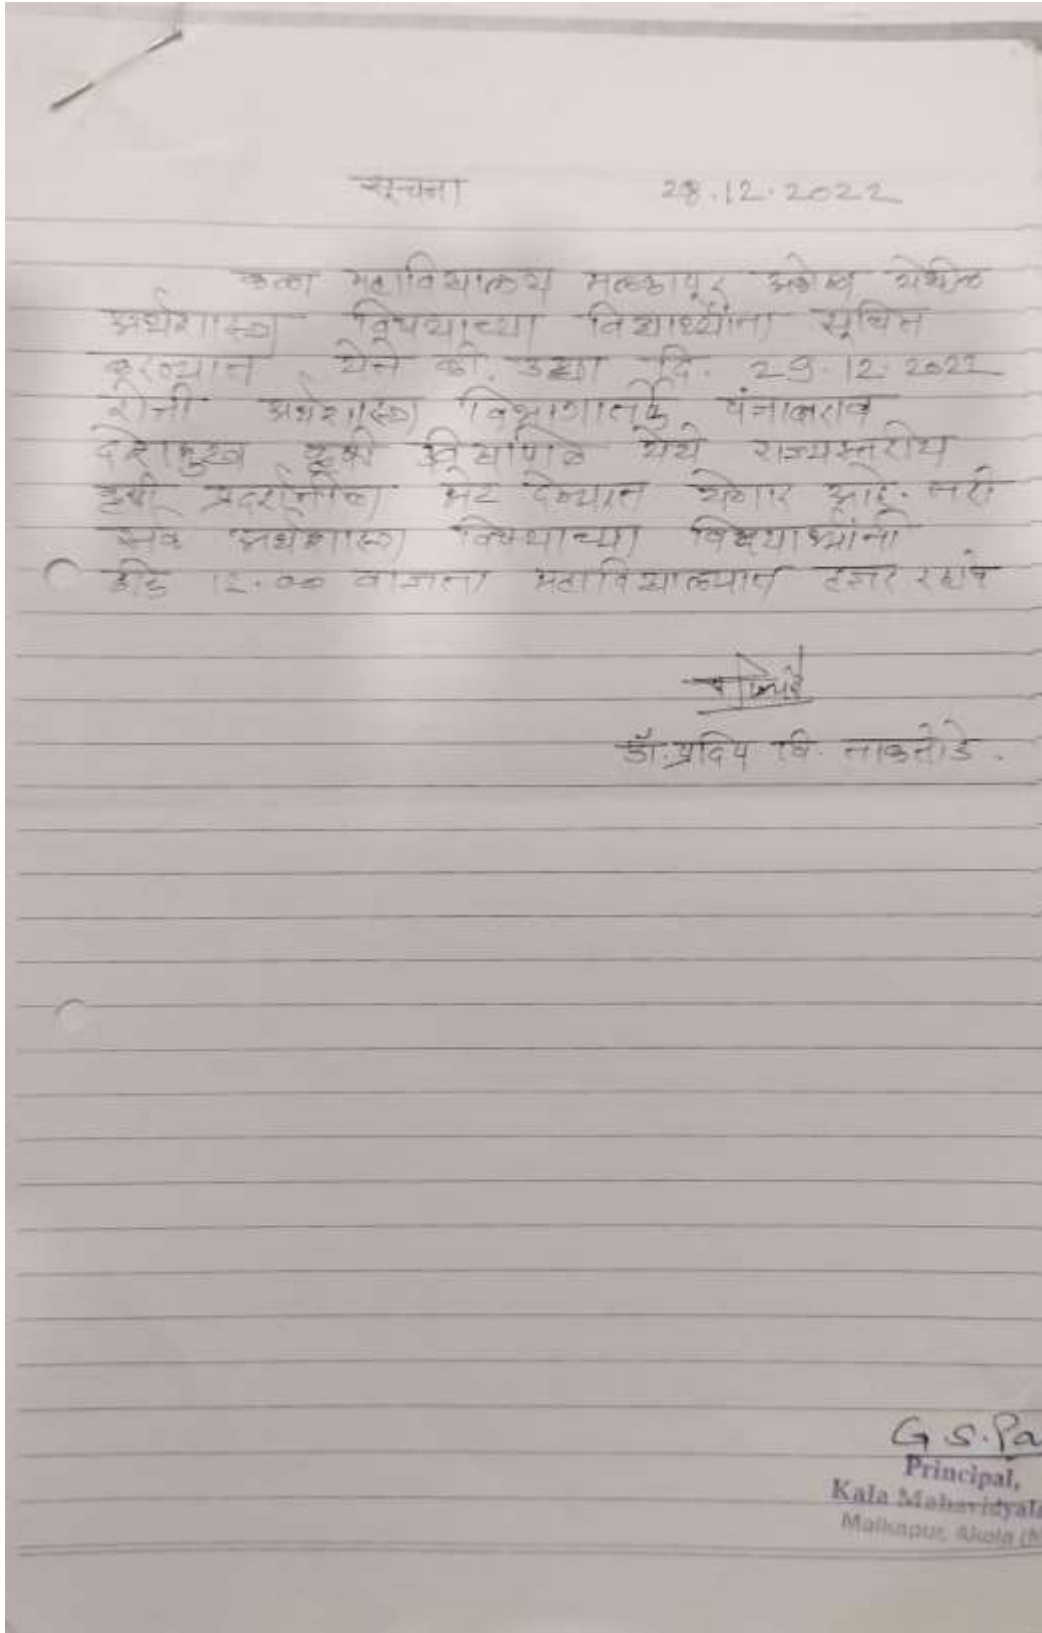 सूचना 28.12.2022
कला महाविद्यालय मलकापूर अकोला येथील
अर्थशास्त्र विषयाच्या विद्यार्थ्यांना सूचित
करण्यात येते की. उद्या दि. 29.12.2022
रोजी अर्थशास्त्र विभागातर्फे पंजाबराव
देशमुख कृषी विद्यापिठ येथे राज्यस्तरीय
कृषी प्रदर्शनीला भेट देण्यात येणार आहे. तरी
सर्व अर्थशास्त्र विषयाच्या विद्यार्थ्यांनी
ठीक 12.00 वाजता महाविद्यालयात हजर रहावे
डॉ. प्रदिप वि. नाकतोडे.
G S. Pa
Principal,
Kala Mahavidyala
Malkapur, Akola (M